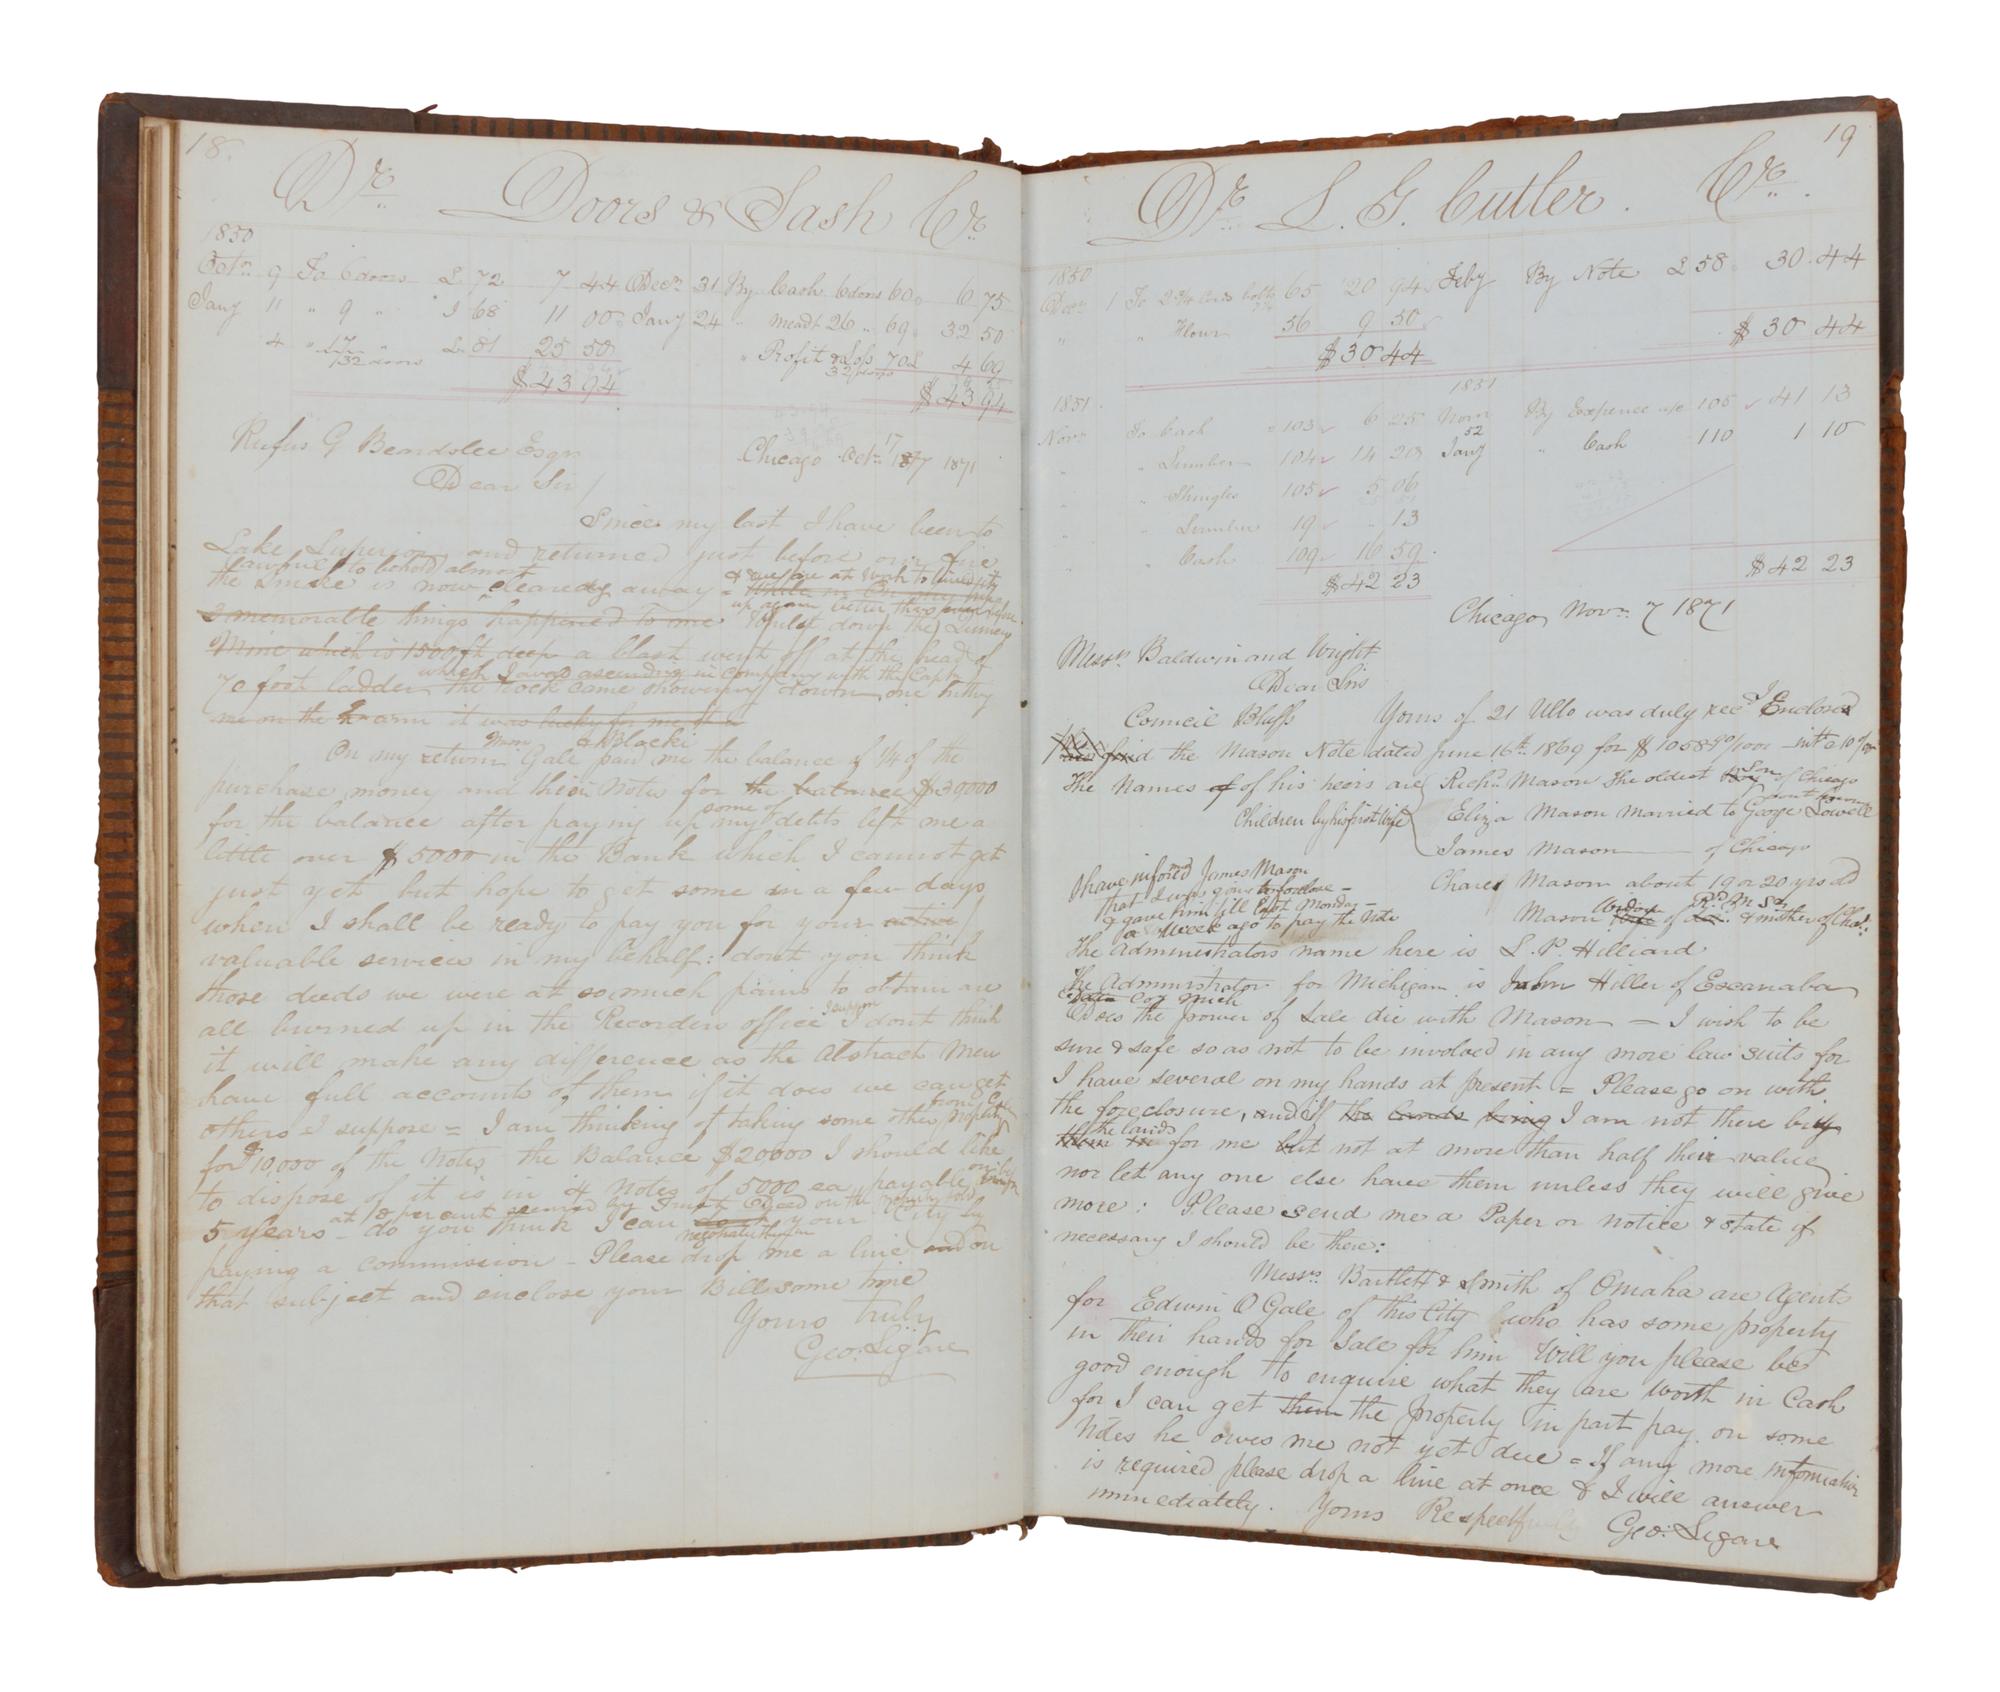 18.
Dr. Doors & Sash Cr.
1850
Octr. 9 To 6 doors L 72 7 44 Decr. 31 By Cash 6 doors 60 6 75
Jany 11 " 9 " J 68 11 00 Jany 24 " Meadt 26 " 69 32 50
4 " 17 L 81 25 50 " Profit & Loss 70L 4 69
32 doors 32 doors
$43 94 $43 94
Rufus G Beardslee Esqr Chicago Octr. 17 1871
Dear Sir/
Since my last I have been to
Lake Superior and returned just before our fire
(awful to behold) almost
the smoke is now cleared away = & we are at work to build city
up again better than ever before
2 memorable things happened to me Whilst down the Quincy
Mine which is 1500 ft deep a blast went off at the head of
which I was ascending in company with the Captn
70 foot ladder the rock came showering down one hitting
me on the arm it was lucky for me it
& Blocki
On my return Gale paid me the balance of 1/4 of the
purchase money and their Notes for the balance $30,000
some of
for the balance after paying up my debts left me a
little over $5000 in the Bank which I cannot get
just yet but hope to get some in a few days
when I shall be ready to pay you for your active
valuable service in my behalf: dont you think
those deeds we were at so much pains to obtain are
I suppose
all burned up in the Recorders office I dont think
it will make any difference as the Abstract Men
have full accounts of them if it does we can get
others I suppose = I am thinking of taking some other property
for $10,000 of the Notes the Balance $20000 I should like
to dispose of it is in 4 Notes of 5000 ea payable on or before
at 10 percent secured by Trust Deed on the property sold
5 years - do you think I can your City by
negotiate them in
paying a commission - Please drop me a line and on
that subject and enclose your Bill some time
Yours truly
Geo: Legare
19
Dr. L. G. Cutler. Cr.
1850
Decr. 1 To 2 3/4 Cords bolts 65 20 94 Feby By Note L 58 30.44
" " Flour 56 9 50
$30 44 $30 44
1851 1851
Novr To Cash 103 6 25 Novr By Expence a/c 105 41 13
52
" " Lumber 104 14 20 Jany " Cash 110 1 10
" " Shingles 105 5 06
" " Lumber 19 " 13
" " Cash 109 16 59
$42 23 $42 23
Chicago Novr. 7 1871
Messrs Baldwin and Wright
Dear Sirs
Council Bluffs Yours of 21 Ullo was duly recd I Enclose
find the Mason Note dated June 16th 1869 for $1058 90/100 int @ 10 %
The Names of of his heirs are Richd Mason the oldest Son of Chicago
Children by his first Wife Eliza Mason Married to George Lowell
James Mason of Chicago
I have infored James Mason Chares Mason about 19 or 20 yrs old
that I was going to foreclose -
& gave him till last Monday - Mason Widow of Rd. M Sr. & mother of Chas:
a week ago to pay the Note
The Administrators name here is L. P. Hilliard
The Administrator for Michigan is John Hiller of Escanaba
Delta Coy Mich
Does the power of Sale die with Mason - I wish to be
sure & safe so as not to be involved in any more law suits for
I have several on my hands at present = Please go on with
the foreclosure, and if the lands bring I am not there buy
the lands
them in for me but not at more than half their value
nor let any one else have them unless they will give
more: Please send me a Paper or notice & state if
necessary I should be there:
Messrs Bartlett & Smith of Omaha are Agents
for Edwin O Gale of this City who has some property
in their hands for Sale for him Will you please be
good enough to enquire what they are worth in Cash
for I can get them the property in part pay on some
Notes he owes me not yet due = If any more information
is required please drop a line at once & I will answer
immediately. Yours Respectfully Geo: Legare